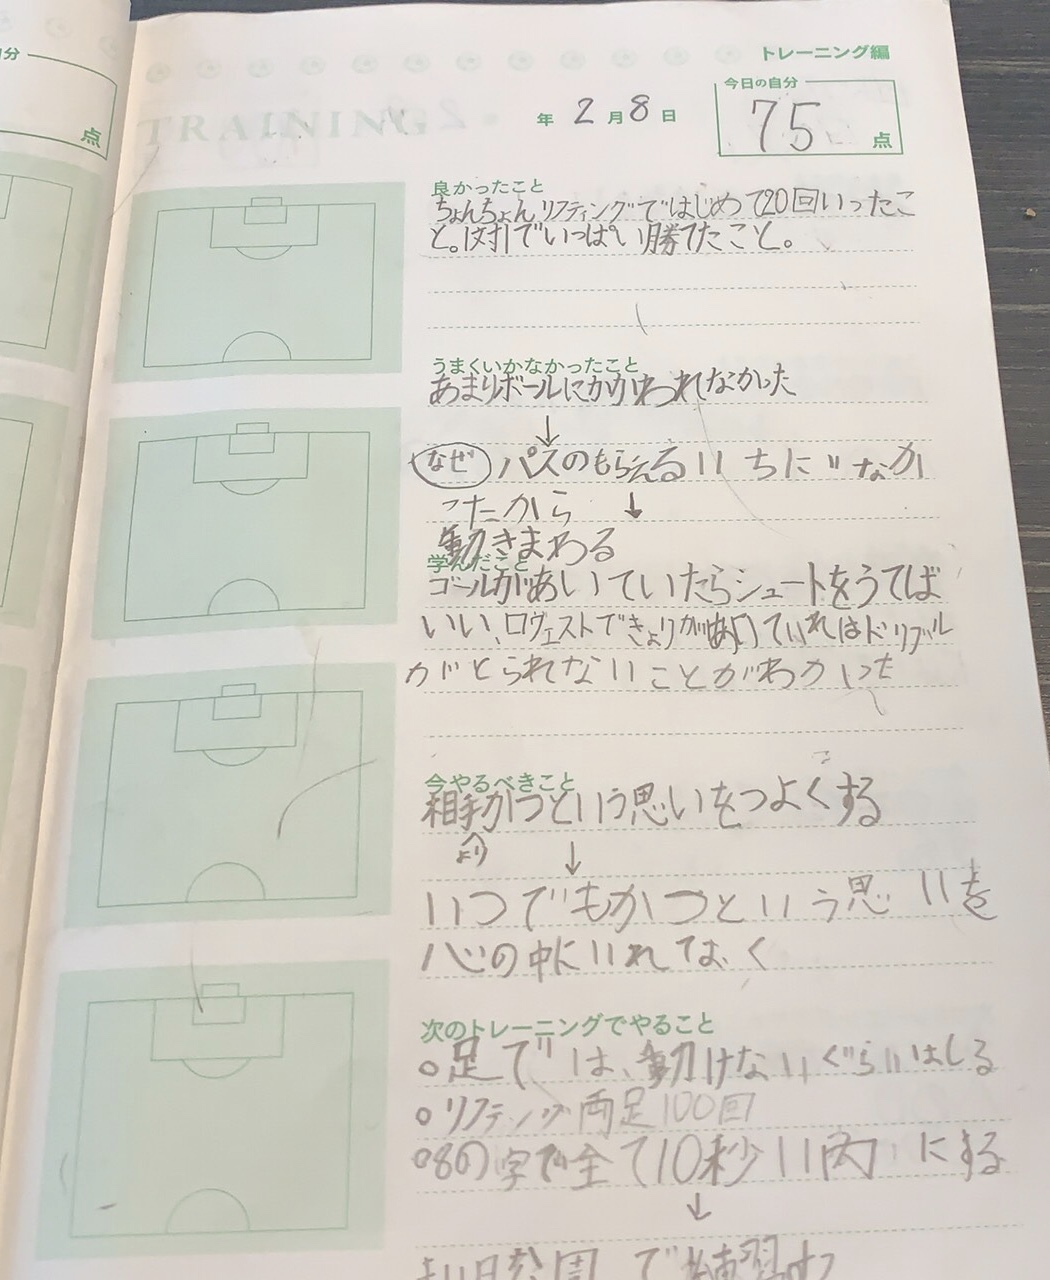 自分
点
トレーニング編
TRAINING
年 2月8日
今日の自分
75
点
良かったこと
ちょんちょんリフティングではじめて20回いったこ
と。1対1でいっぱい勝てたこと。
うまくいかなかったこと
あまりボールにかかわれなかった
↓
なぜ パスのもらえるいちにいなか
ったから ↓
動きまわる
学んだこと
ゴールがあいていたらシュートをうてば
いい、ロヴェストできょりがあいていればドリブル
がとられないことがわかった
今やるべきこと
相手かつという思いをつよくする
より
↓
いつでもかつという思いを
心の中にいれておく
次のトレーニングでやること
○足では、動けないぐらいはしる
○リフティング両足100回
○8の字で全て10秒い内にする
↓
で練習する